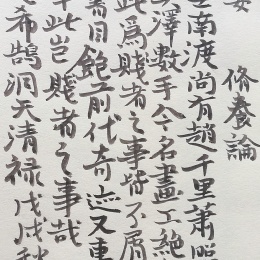 脩養論
南渡尚有趙千里蕭照
澤數手今名畫工絕
此為賤者之事皆不屑
書目飽前代奇迹又車
此豈賤者之事哉
希鵠洞天清祿戊戌秋